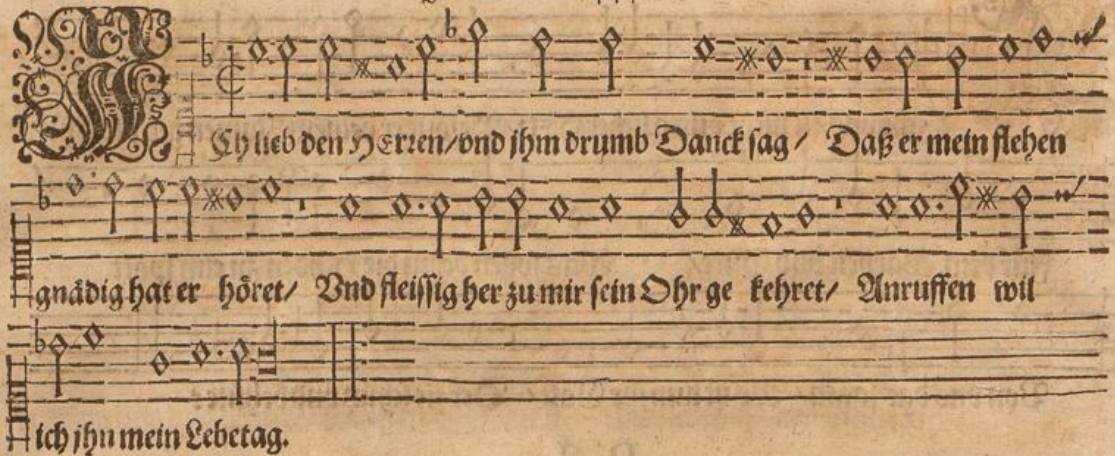 ICh lieb den HErren/vnd jhm drumb Danck sag/ Daß er mein flehen
gnädig hat er höret/ Vnd fleissig her zu mir sein Ohr ge kehret/ Anruffen wil
ich jhn mein Lebetag.